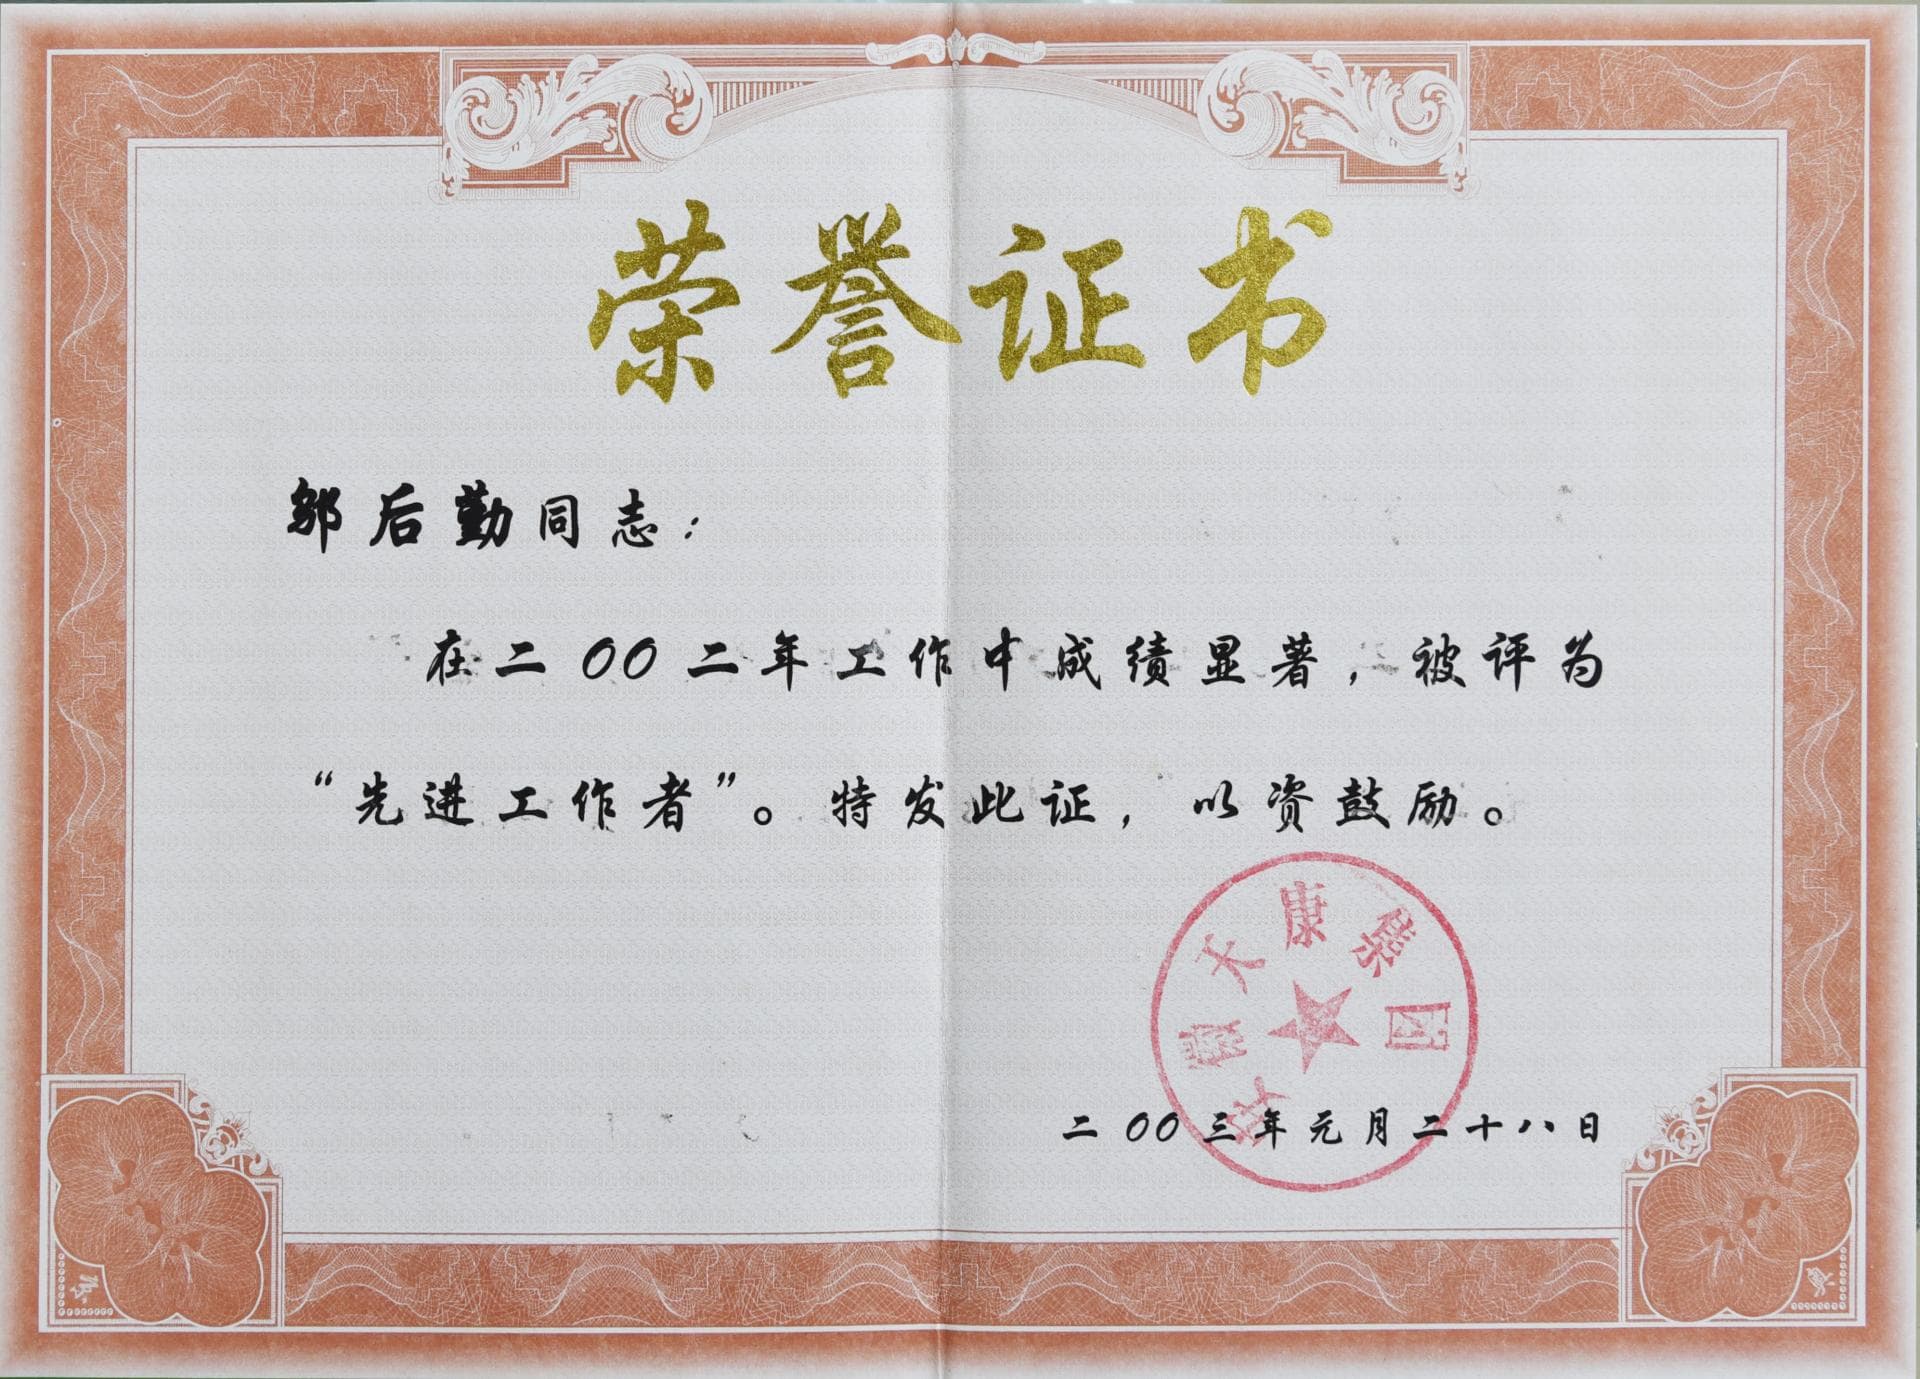 荣誉证书
邬后勤同志：
在二00二年工作中成绩显著，被评为
“先进工作者”。特发此证，以资鼓励。
安徽天康集团
二00三年元月二十八日